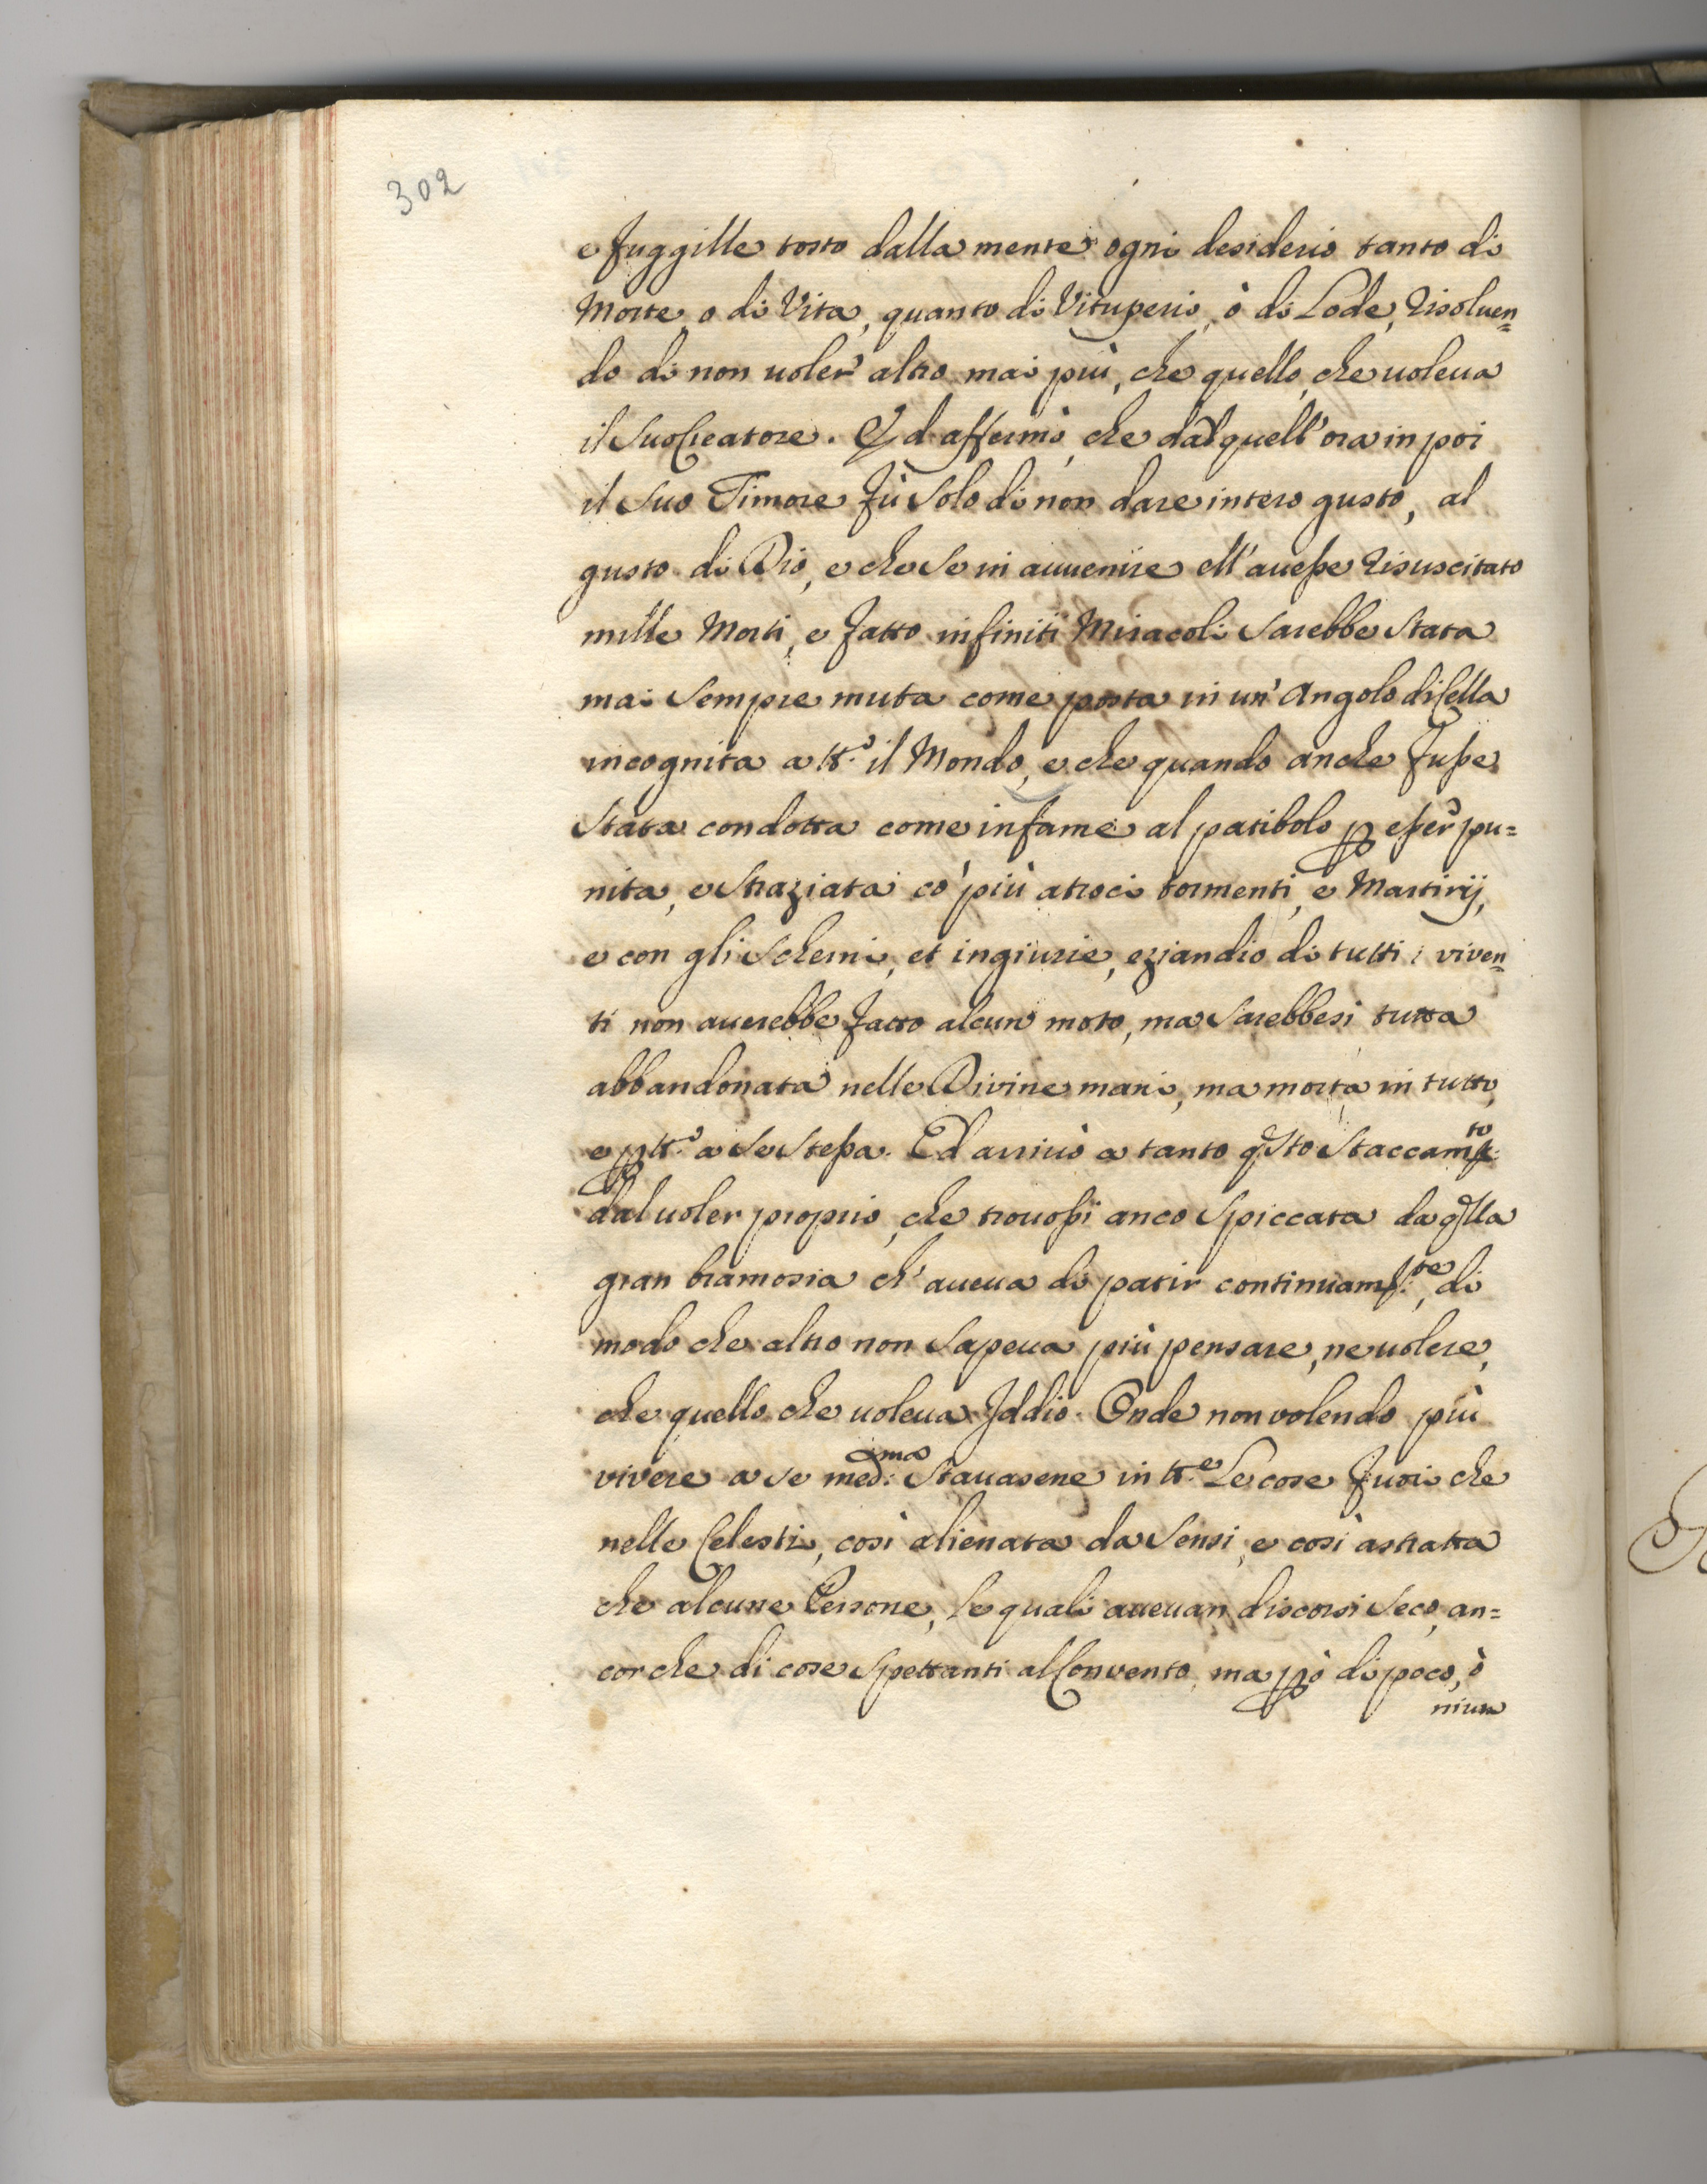 302
e fuggille tosto dalla mente ogni desiderio tanto di
Morte, o di Vita, quanto di Vituperio, ò di Lode, risoluen=
do di non uoler altro mai più, che quello, che uoleua
il suo Creatore. Ed affermò, che da quell'ora in poi
il suo Timore fù solo di non dare intero gusto, al
gusto di Dio, e che se in auuenire ell'auesse risuscitato
mille Morti, e fatto infiniti Miracoli sarebbe stata
mai sempre muta come posta in un' Angolo di Cella
incognita a tt.o il Mondo, e che quando anche fusse
stata condotta come infame al patibolo p esser pu=
nita, e straziata co' più atroci tormenti, e Martirij,
e con gli scherni, et ingiurie, eziandio di tutti i viven=
ti non auerebbe fatto alcun moto, ma sarebbesi tutta
abbandonata nelle Divine mani, ma morta in tutto,
e p tt.o a se stessa. Ed arriuò a tanto qsto staccam.to
dal uoler proprio, che trouossi anco spiccata da qlla
gran bramosia ch' aueua di patir continuam.te, di
modo che altro non sapeua più pensare, ne uolere,
che quello che uoleua Iddio. Onde non volendo più
vivere a se med:ma stauasene in tt.e Le cose fuori che
nelle Celesti, così alienata da sensi, e così astratta
che alcune Persone, le quali aueuan discorsi seco, an=
corche di cose spettanti al Convento, ma pò di poco, ò
niuna